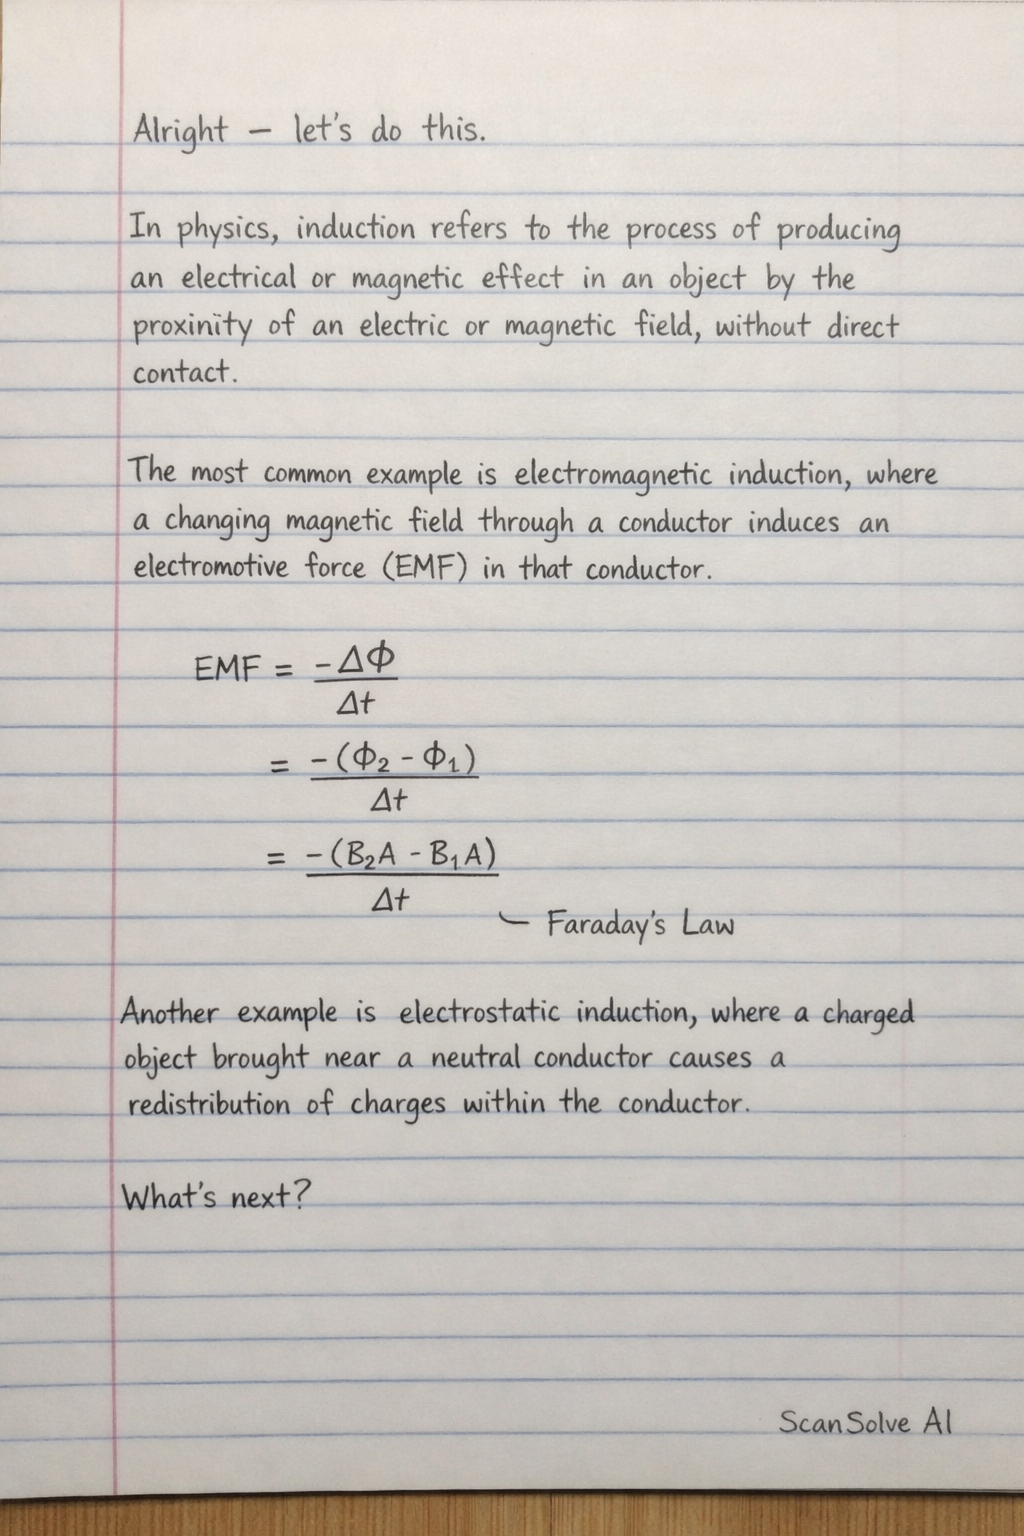 Alright – let's do this.
In physics, induction refers to the process of producing
an electrical or magnetic effect in an object by the
proxinity of an electric or magnetic field, without direct
contact.
The most common example is electromagnetic induction, where
a changing magnetic field through a conductor induces an
electromotive force (EMF) in that conductor.
EMF = -ΔΦ
Δt
= -(Φ₂ - Φ₁)
Δt
= -(B₂A - B₁A)
Δt
Faraday's Law
Another example is electrostatic induction, where a charged
object brought near a neutral conductor causes a
redistribution of charges within the conductor.
What's next?
ScanSolve AI